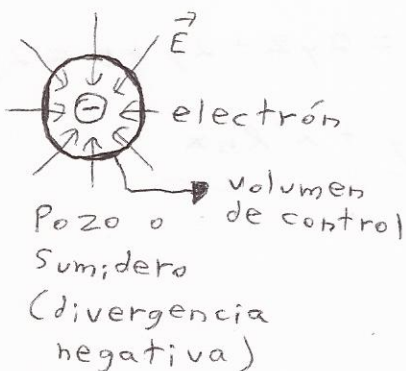 E
−
electrón
volumen
de control
Pozo o
Sumidero
(divergencia
negativa)